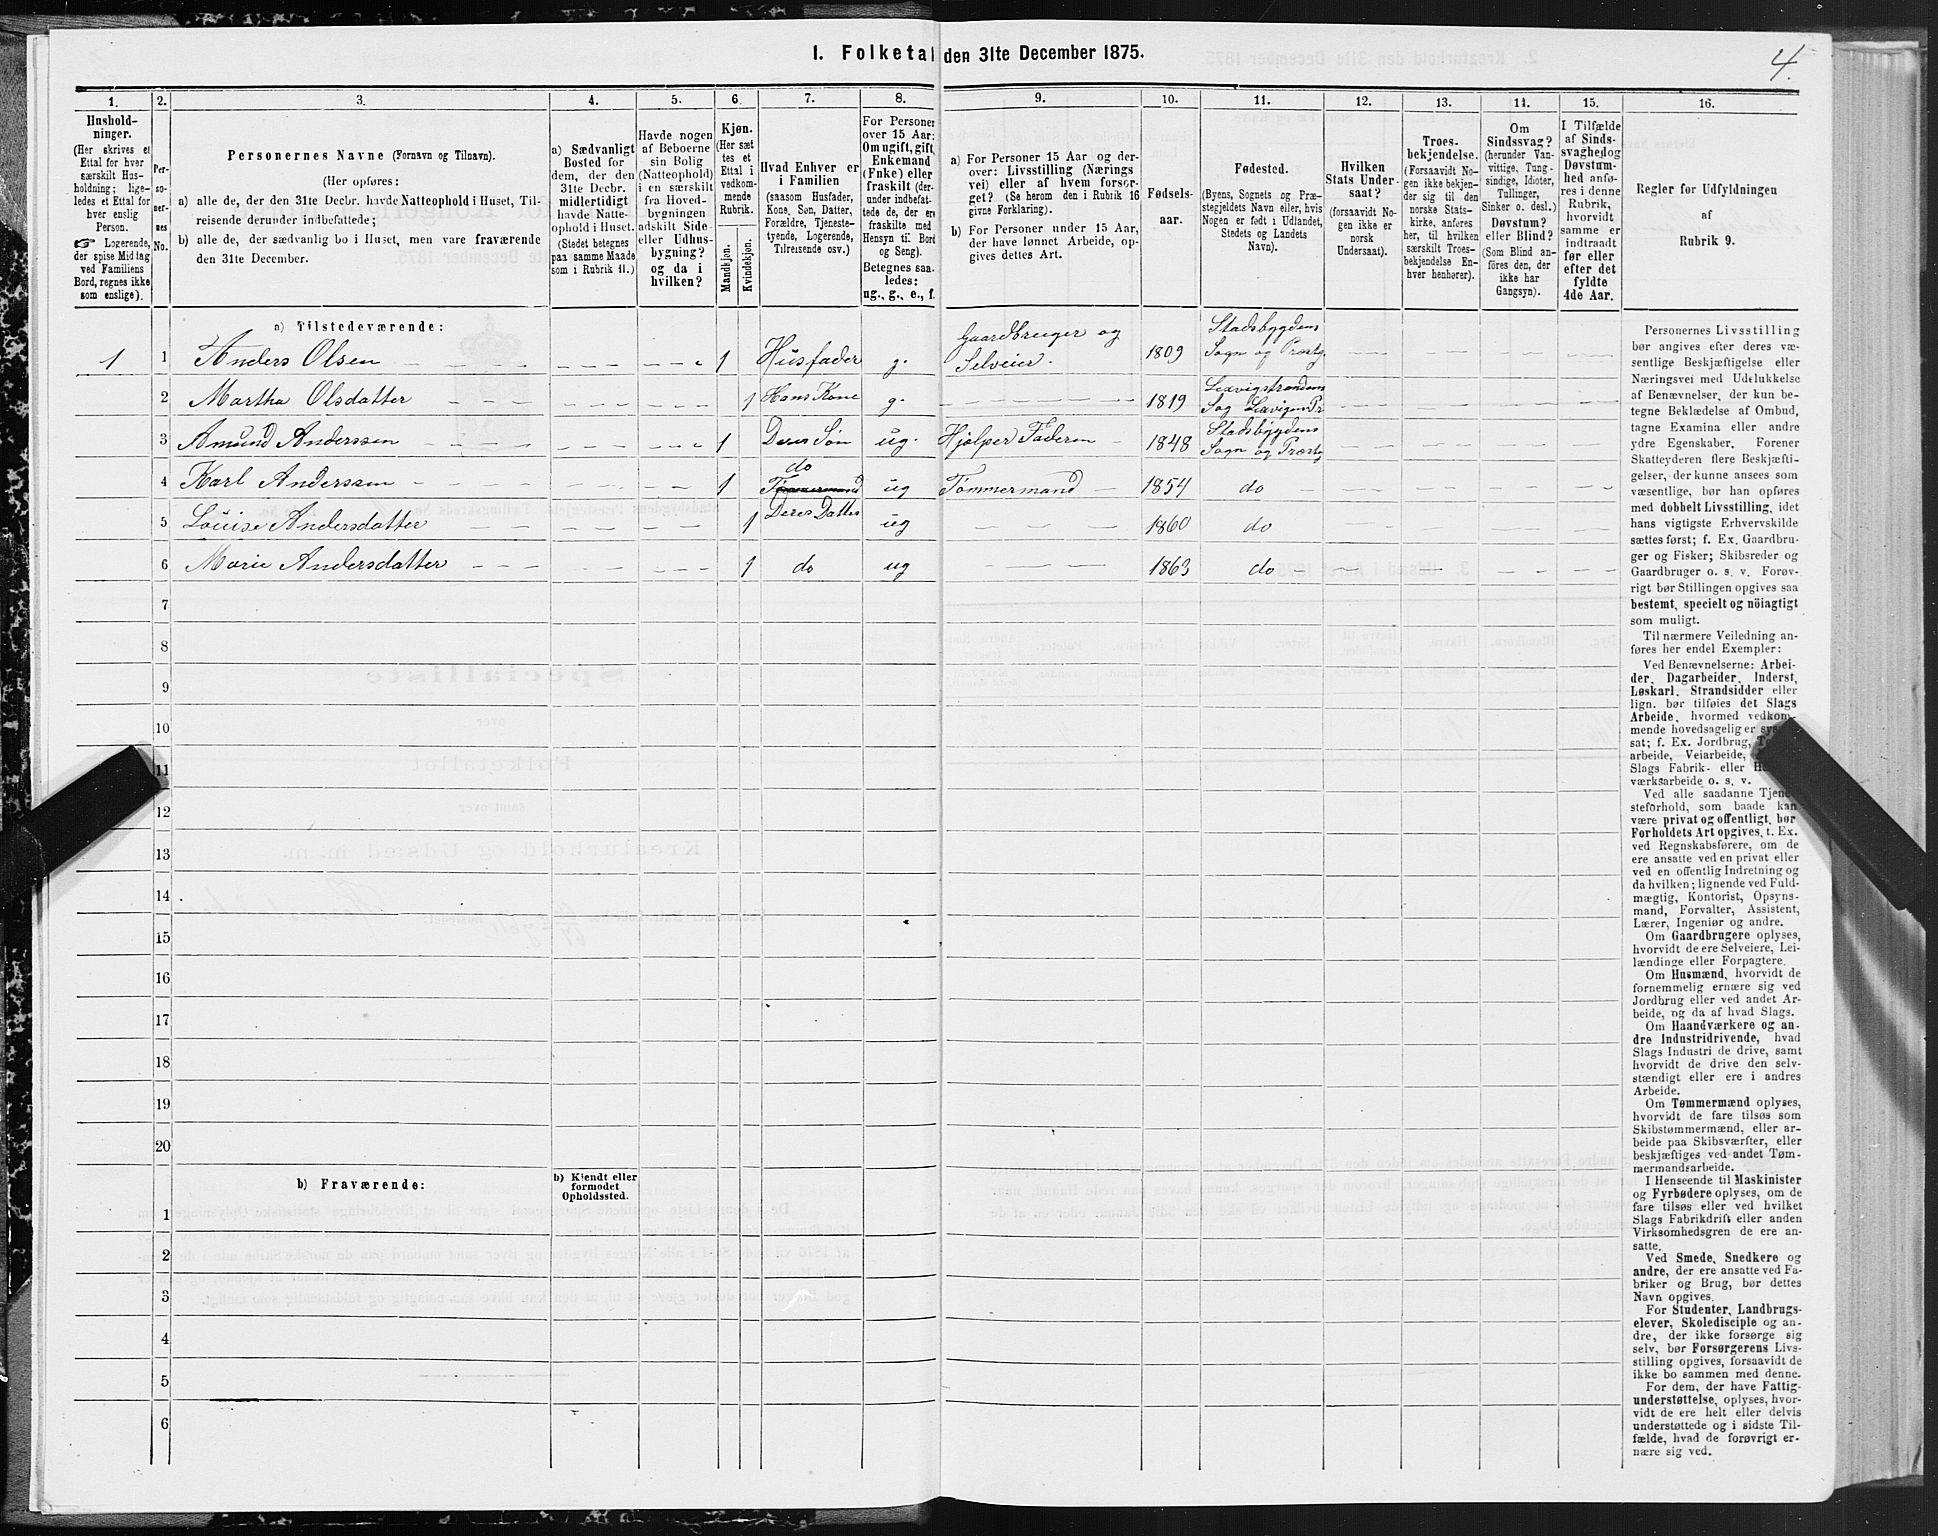 I. Folketal den 31te December 1875.
4.
1.
2.
3.
4.
5.
6.
7.
8.
9.
10.
11.
12.
13.
14.
15.
16.
Hushold-
ninger.
(Her skrives et
Ettal for hver
særskilt Hus-
holdning; lige-
ledes et Ettal for
hver enslig
Person.
☞ Logerende,
der spise Middag
ved Familiens
Bord, regnes ikke
som enslige).
Per-
so-
ner-
nes
No.
Personernes Navne (Fornavn og Tilnavn).
(Her opføres:
a) alle de, der den 31te Decbr. havde Natteophold i Huset, Til-
reisende derunder indbefattede;
b) alle de, der sædvanlig bo i Huset, men vare fraværende
den 31te December.
a) Sædvanligt
Bosted for
dem, der den
31te Decbr.
midlertidigt
havde Natte-
ophold i Huset.
(Stedet betegnes
paa samme Maade
som i Rubrik 11.)
Havde nogen
af Beboerne
sin Bolig
(Natteophold)
i en særskilt
fra Hoved-
bygningen
adskilt Side-
eller Udhus-
bygning?
og da i
hvilken?
Kjøn.
(Her sæt-
tes et
Ettal i
vedkom-
mende
Rubrik.
Mandkjøn.
Kvindekjøn.
Hvad Enhver er
i Familien
(saasom Husfader,
Kone, Søn, Datter,
Forældre, Tjeneste-
tyende, Logerende,
Tilreisende osv.)
For Personer
over 15 Aar:
Om ugift, gift,
Enkemand
(Enke) eller
fraskilt (der-
under indbefat-
tede de, der ere
fraskilte med
Hensyn til Bord
og Seng).
Betegnes saa-
ledes:
ug., g., e., f.
a) For Personer 15 Aar og der-
over: Livsstilling (Nærings
vei) eller af hvem forsør-
get? (Se herom den i Rubrik 16
givne Forklaring).
b) For Personer under 15 Aar,
der have lønnet Arbeide, op-
gives dettes Art.
Fødsels-
aar.
Fødested.
(Byens, Sognets og Præ-
stegjeldets Navn eller, hvis
Nogen er født i Udlandet,
Stedets og Landets
Navn).
Hvilken
Stats Under-
saat?
(forsaavidt No-
gen ikke er
norsk
Undersaat).
Troes-
bekjendelse.
(Forsaavidt No-
gen ikke bekjen-
der sig til den
norske Stats-
kirke, anføres
her, til hvilken
særskilt Troes-
bekjendelse En-
hver henhører).
Om
Sindssvag?
(herunder Van-
vittige, Tung-
sindige, Idioter,
Tullinger,
Sinker o. desl.)
Døvstum?
eller Blind?
(Som Blind an-
føres den, der
ikke har
Gangsyn).
I Tilfælde
af Sinds-
svaghed og
Døvstum-
hed anfø-
res i denne
Rubrik,
hvorvidt
samme er
indtraadt
før eller
efter det
fyldte
4de Aar.
Regler for Udfyldningen
af
Rubrik 9.
a) Tilstedeværende:
1 1 Anders Olsen 1 Husfader g. Gaardbruger og Selveier. 1809 Stadsbygdens Sogn og Præstg.
2 Martha Olsdatter 1 Hans Kone g. 1819 Lexvigstrandens Sog Lexvigens Pr
3 Amund Anderssen 1 Deres Søn ug. Hjælper Faderen 1848 Stadsbygdens Sogn og Præstg
4 Karl Anderssen 1 do Tømmermand ug Tømmermand 1854 do
5 Louise Andersdatter 1 Deres Datter ug 1860 do
6 Marie Andersdatter 1 do ug 1863 do
7
8
9
10
11
12
13
14
15
16
17
18
19
20
b) Fraværende:
b) Kjendt eller
formodet
Opholdssted.
1
2
3
4
5
6
Personernes Livsstilling
bør angives efter deres væ-
sentlige Beskjæftigelse eller
Næringsvei med Udelukkelse
af Benævnelser, der kun be-
tegne Beklædelse af Ombud,
tagne Examina eller andre
ydre Egenskaber. Forener
Skatteyderen flere Beskjæfti-
gelser, der kunne ansees som
væsentlige, bør han opføres
med dobbelt Livsstilling, idet
hans vigtigste Erhvervskilde
sættes først; f. Ex. Gaardbru-
ger og Fisker; Skibsreder og
Gaardbruger o. s. v. Forøv-
rigt bør Stillingen opgives saa
bestemt, specielt og nöiagtigt
som muligt.
Til nærmere Veiledning an-
føres her endel Exempler:
Ved Benævnelserne: Arbei-
der, Dagarbeider, Inderst,
Løskarl, Strandsidder eller
lign. bør tilføies det Slags
Arbeide, hvormed vedkom-
mende hovedsagelig er
sat; f. Ex. Jordbrug,
arbeide, Veiarbeide,
Slags Fabrik- eller
værksarbeide o. s. v.
Ved alle saadanne Tjene-
steforhold, som baade kan
være privat og offentligt, bør
Forholdets Art opgives, t. Ex.
ved Regnskabsførere, om de
ere ansatte ved en privat eller
ved en offentlig Indretning og
da hvilken; lignende ved Fuld-
mægtig, Kontorist, Opsyns-
mand, Forvalter, Assistent,
Lærer, Ingeniør og andre.
Om Gaardbrugere oplyses,
hvorvidt de ere Selveiere, Lei-
lændinge eller Forpagtere.
Om Husmænd, hvorvidt de
fornemmelig ernære sig ved
Jordbrug eller ved andet Ar-
beide, og da af hvad Slags.
Om Haandværkere og an-
dre Industridrivende, hvad
Slags Industri de drive, samt
hvorvidt de drive den selv-
stændigt eller ere i andres
Arbeide.
Om Tømmermænd oplyses,
hvorvidt de fare tilsøs som
Skibstømmermænd, eller ar-
beide paa Skibsværfter, eller
beskjæftiges ved andet Tøm-
mermandsarbeide.
I Henseende til Maskinister
og Fyrbødere oplyses, om de
fare tilsøs eller ved hvilket
Slags Fabrikdrift eller anden
Virksomhedsgren de ere an-
satte.
Ved Smede, Snedkere og
andre, der ere ansatte ved Fa-
briker og Brug, bør dettes
Navn opgives.
For Studenter, Landbrugs-
elever, Skoledisciple og an-
dre, der ikke forsørge sig
selv, bør Forsørgerens Livs-
stilling opgives, forsaavidt de
ikke bo sammen med denne.
For dem, der have Fattig-
understøttelse, oplyses, hvor-
vidt de ere helt eller delvis
understøttede og i sidste Til-
fælde, hvad de forøvrigt er-
nære sig ved.